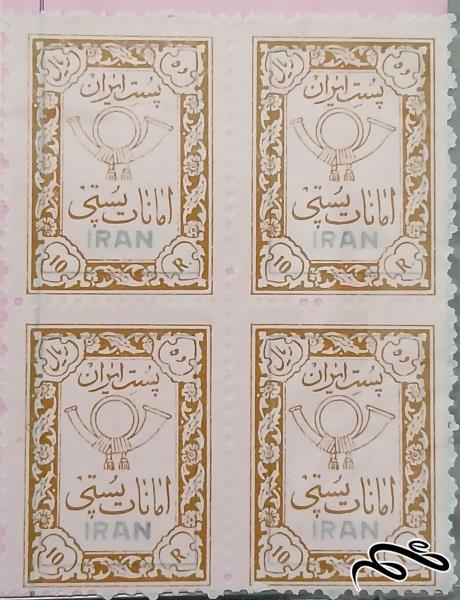 ده ریال
پست ایران
امانات پستی
IRAN
10 R.
ده ریال
پست ایران
امانات پستی
IRAN
10 R.
ده ریال
پست ایران
امانات پستی
IRAN
10 R.
ده ریال
پست ایران
امانات پستی
IRAN
10